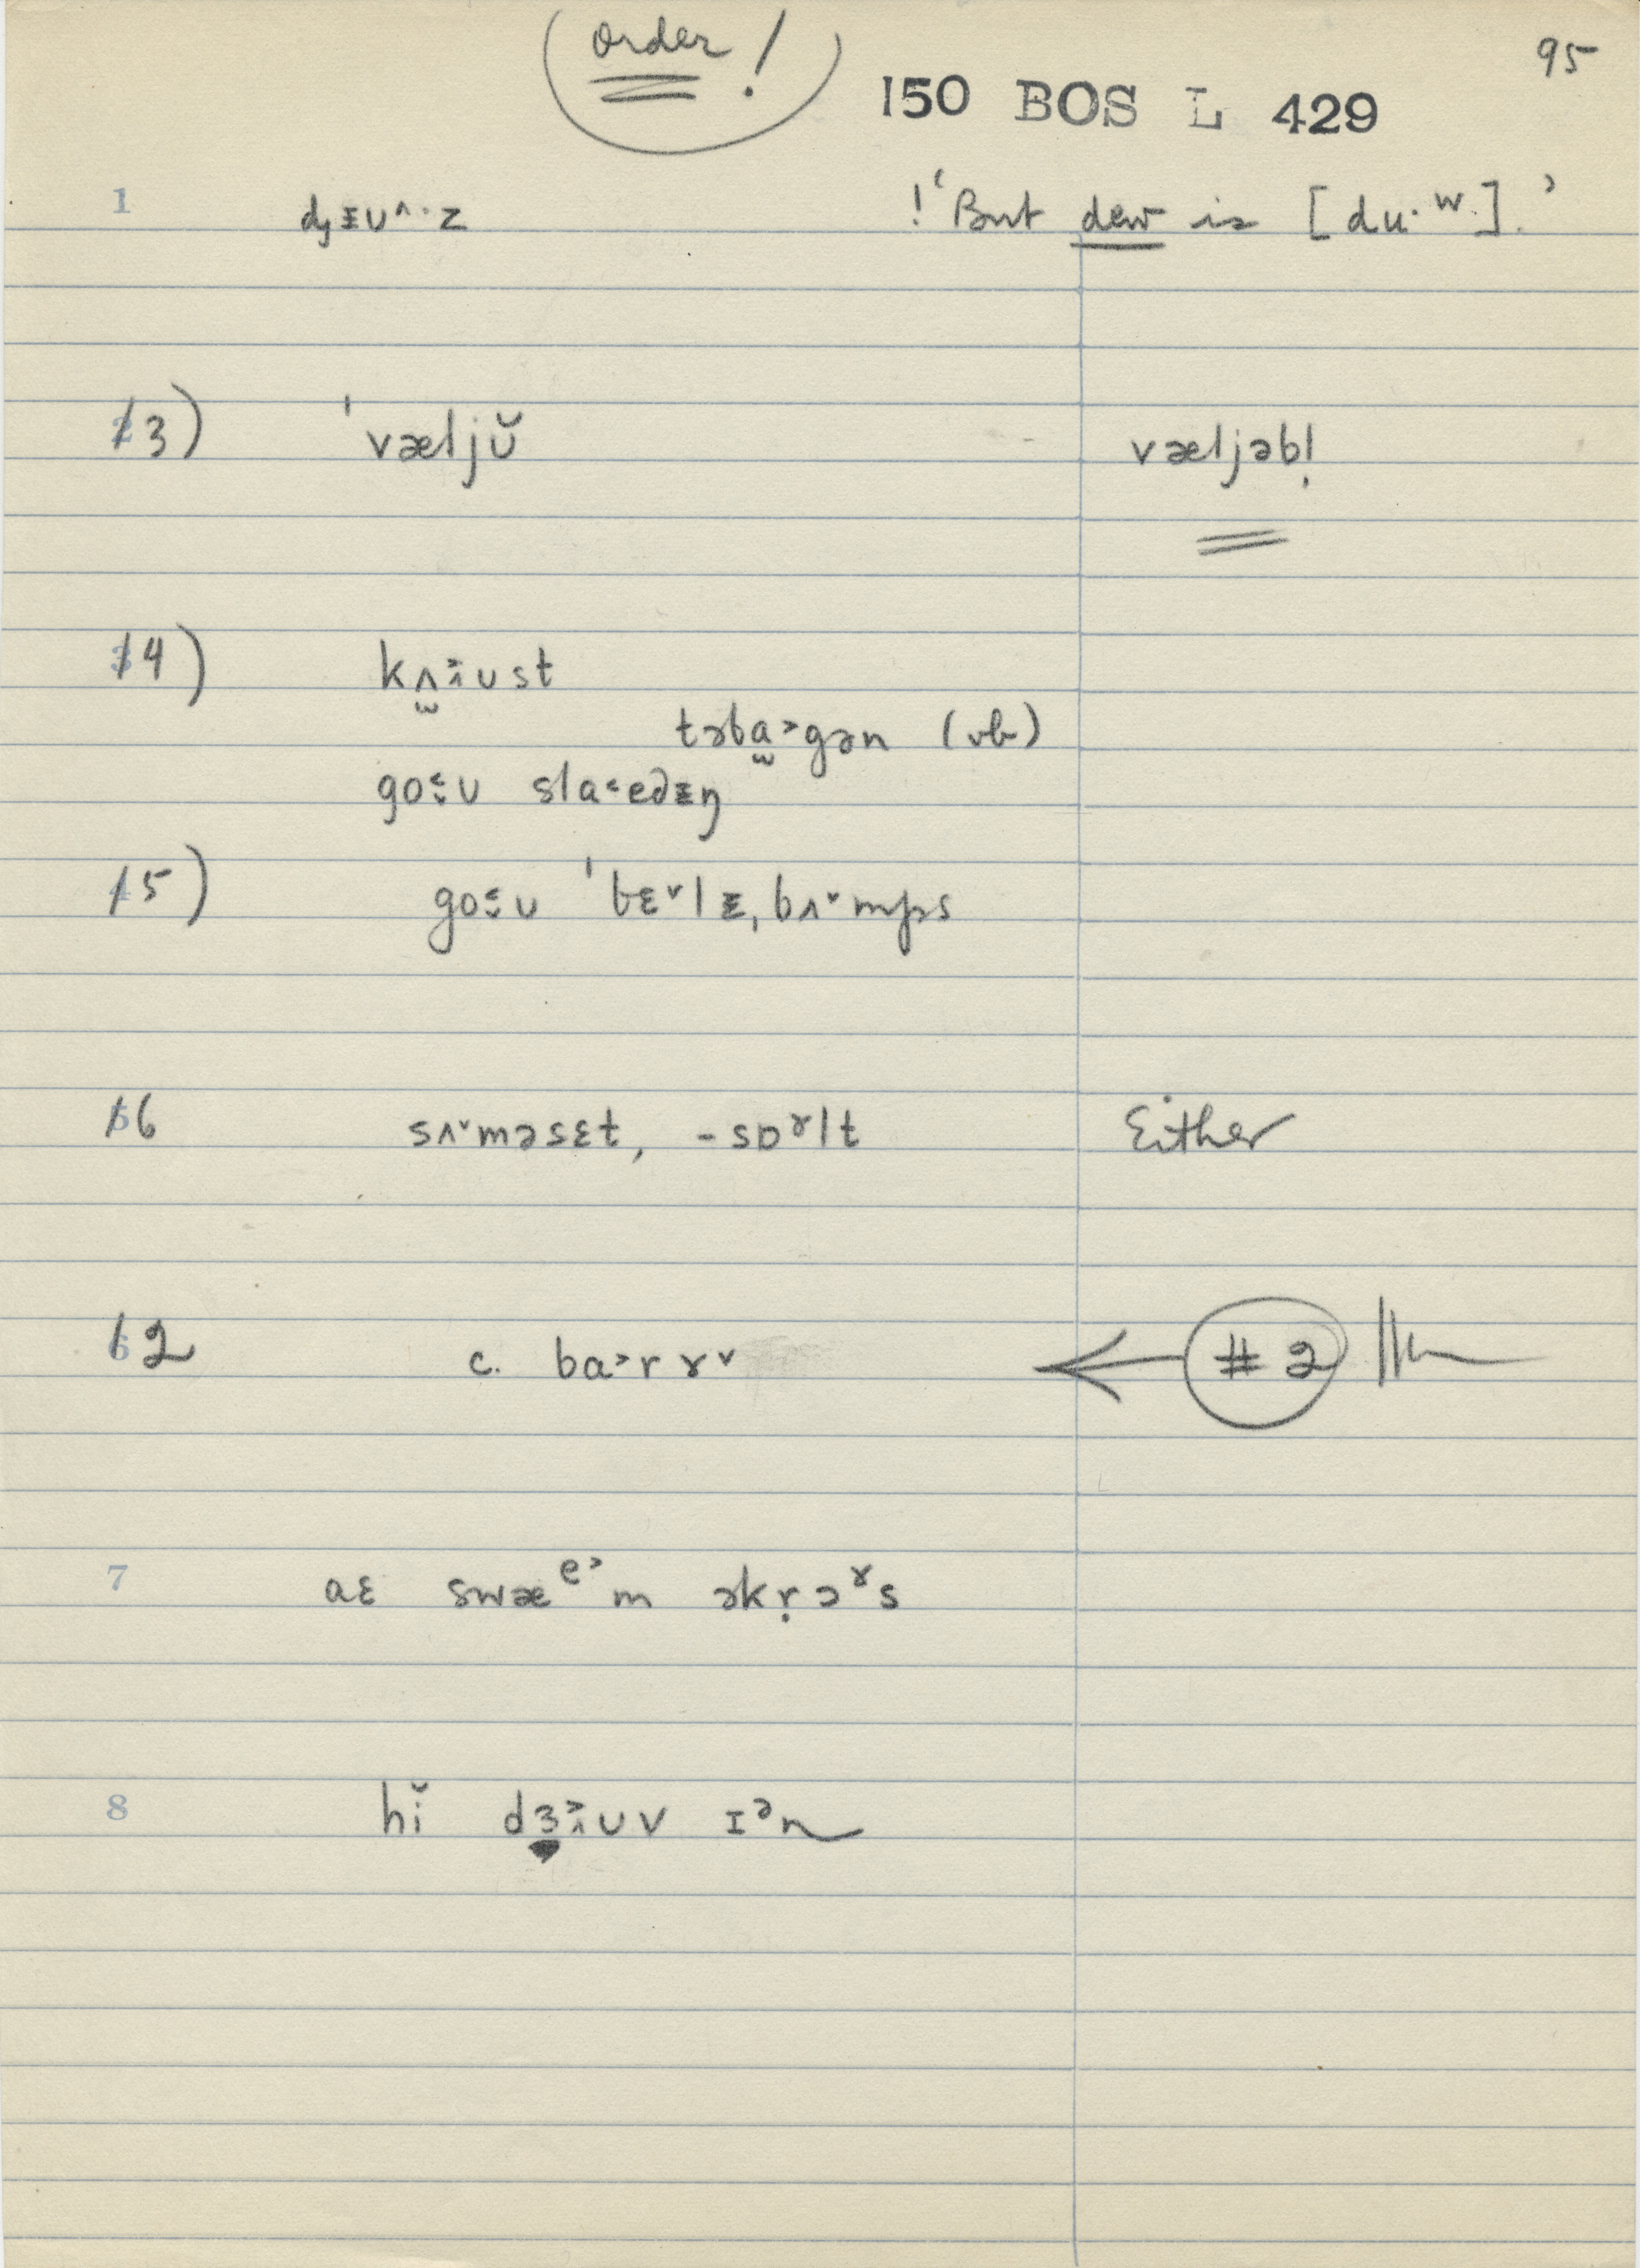 order!
95
150 BOS L 429
1 dᶎɪʊ^·z !'But dew is [du·ʷ].'
3) ˈvæljŭ væljəbl̩
4) kʌ̯ɨ˃ʊst
təbɑ̯˃gən (vb)
go˂ʊ slɑ˂edɪŋ
5) go˂ʊ ˈbɛˇlɪˌbʌˇmps
6 sʌˇməsɛt, -sɒˠlt Either
2 c. ba˃rɤˇ ← #2
7 aɛ swæᵉ˃m əkr̩ɔˠs
8 hĭ dɜɨ˃ʊv ɪᵊn